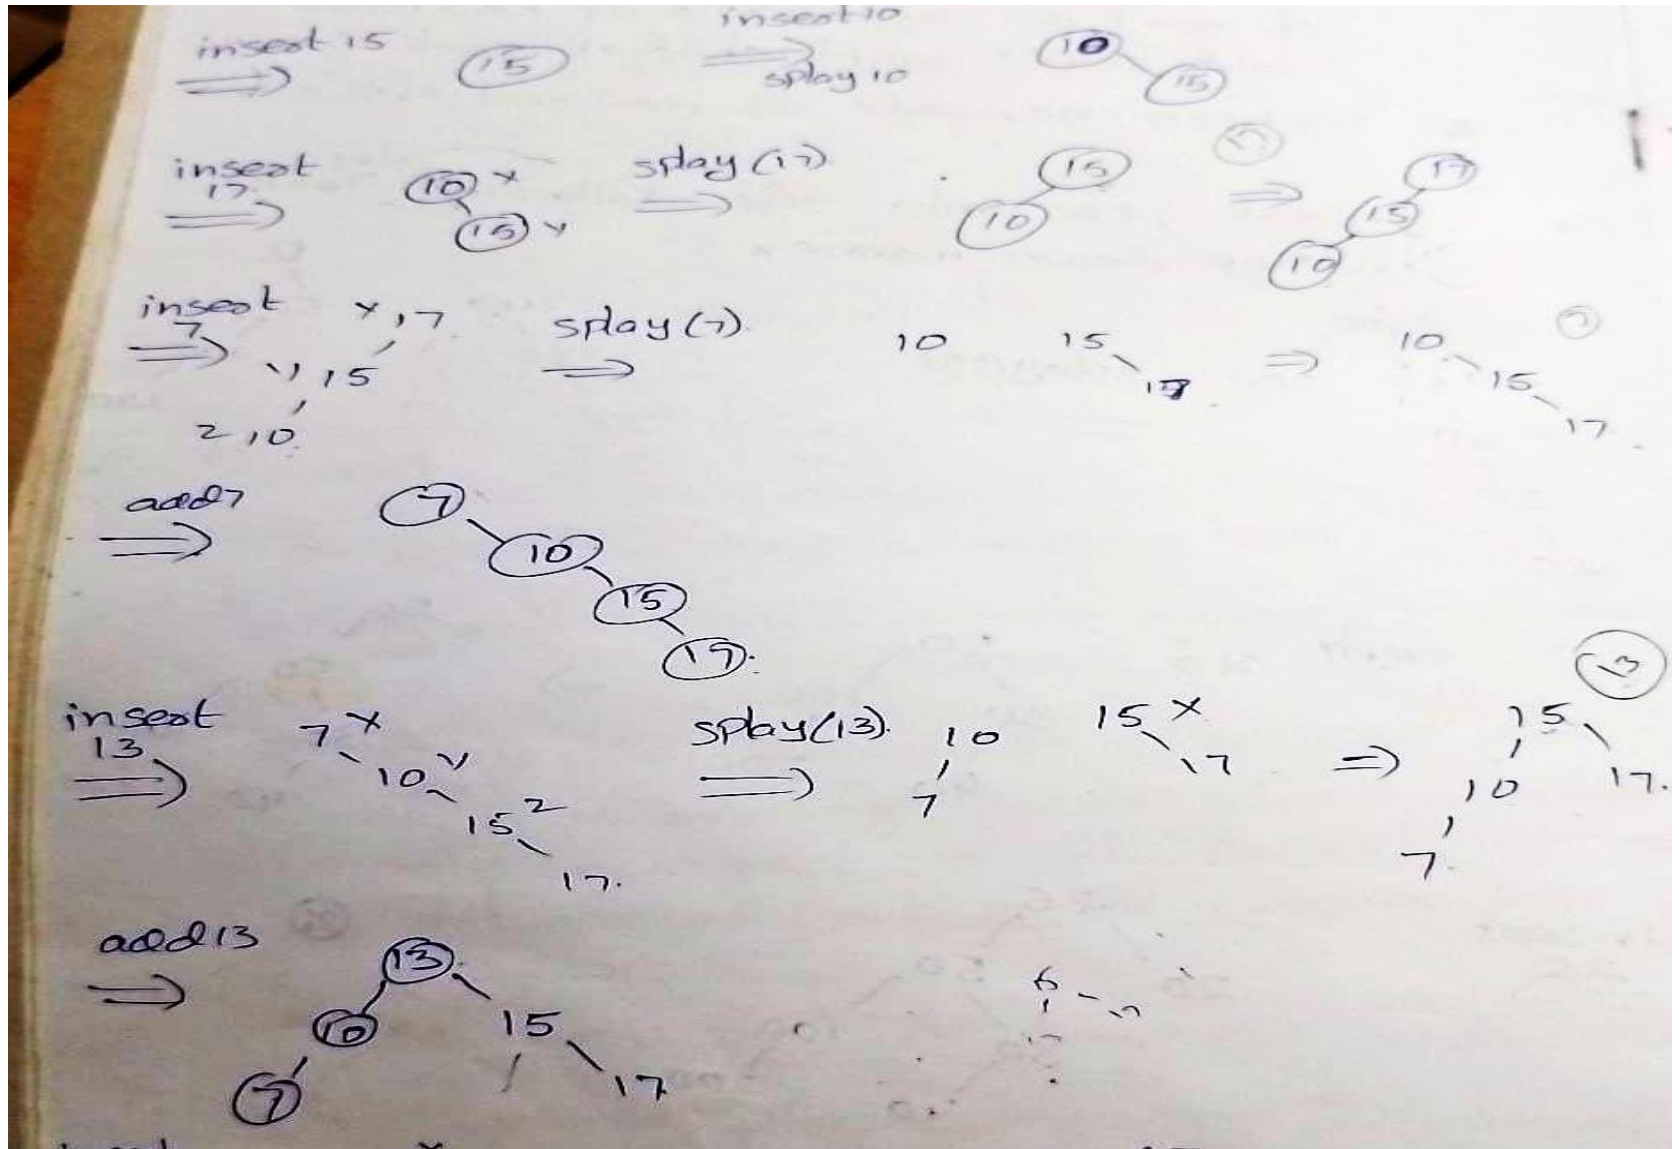 insert 15 ⟹ 15 insert 10 ⟹ splay 10 10 15
insert 17 ⟹ 10 x 15 y splay (17) ⟹ 15 10 17 ⟹ 17 15 10
insert 7 ⟹ x 17 y 15 z 10 splay (7) ⟹ 10 15 17 ⟹ 10 15 17 7
add 7 ⟹ 7 10 15 17
insert 13 ⟹ 7 x 10 y 15 z 17 splay (13) ⟹ 10 7 15 x 17 ⟹ 15 10 7 17 13
add 13 ⟹ 13 10 7 15 17